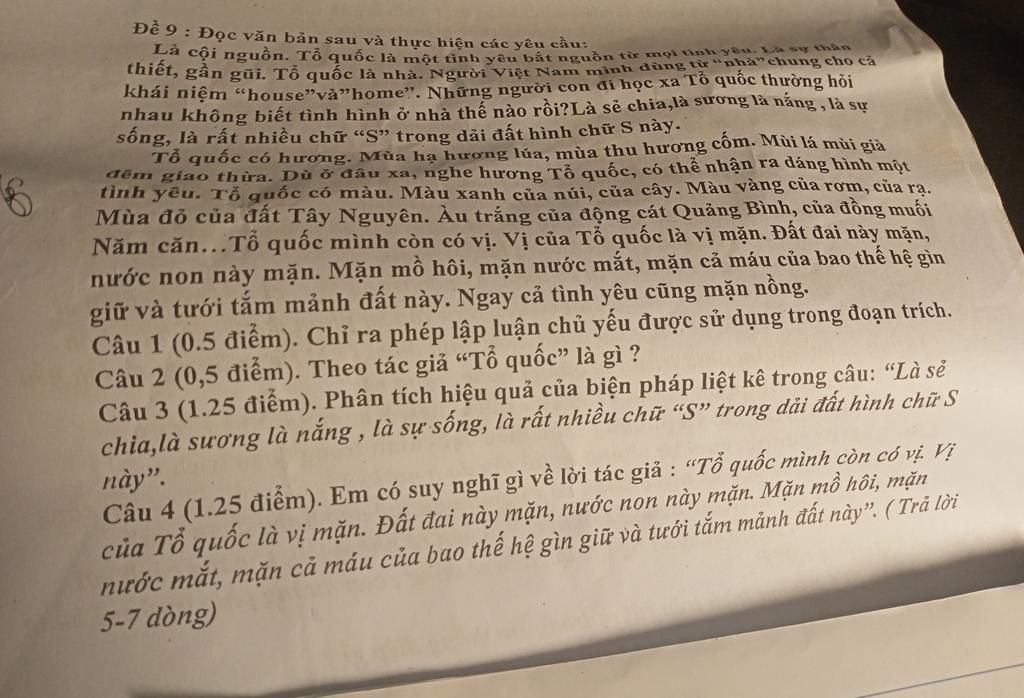 Đề 9 : Đọc văn bản sau và thực hiện các yêu cầu:
Là cội nguồn. Tổ quốc là một tình yêu bắt nguồn từ mọi tình yêu. Là sự thân
thiết, gần gũi. Tổ quốc là nhà. Người Việt Nam mình dùng từ “nhà” chung cho cả
khái niệm “house”và”home”. Những người con đi học xa Tổ quốc thường hỏi
nhau không biết tình hình ở nhà thế nào rồi?Là sẻ chia,là sương là nắng , là sự
sống, là rất nhiều chữ “S” trong dải đất hình chữ S này.
Tổ quốc có hương. Mùa hạ hương lúa, mùa thu hương cốm. Mùi lá mùi già
đêm giao thừa. Dù ở đâu xa, nghe hương Tổ quốc, có thể nhận ra dáng hình một
tình yêu. Tổ quốc có màu. Màu xanh của núi, của cây. Màu vàng của rơm, của rạ.
Mùa đỏ của đất Tây Nguyên. Àu trắng của động cát Quảng Bình, của đồng muối
Năm căn…Tổ quốc mình còn có vị. Vị của Tổ quốc là vị mặn. Đất đai này mặn,
nước non này mặn. Mặn mồ hôi, mặn nước mắt, mặn cả máu của bao thế hệ gìn
giữ và tưới tắm mảnh đất này. Ngay cả tình yêu cũng mặn nồng.
Câu 1 (0.5 điểm). Chỉ ra phép lập luận chủ yếu được sử dụng trong đoạn trích.
Câu 2 (0,5 điểm). Theo tác giả “Tổ quốc” là gì ?
Câu 3 (1.25 điểm). Phân tích hiệu quả của biện pháp liệt kê trong câu: “Là sẻ
chia,là sương là nắng , là sự sống, là rất nhiều chữ “S” trong dải đất hình chữ S
này”.
Câu 4 (1.25 điểm). Em có suy nghĩ gì về lời tác giả : “Tổ quốc mình còn có vị. Vị
của Tổ quốc là vị mặn. Đất đai này mặn, nước non này mặn. Mặn mồ hôi, mặn
nước mắt, mặn cả máu của bao thế hệ gìn giữ và tưới tắm mảnh đất này”. ( Trả lời
5-7 dòng)